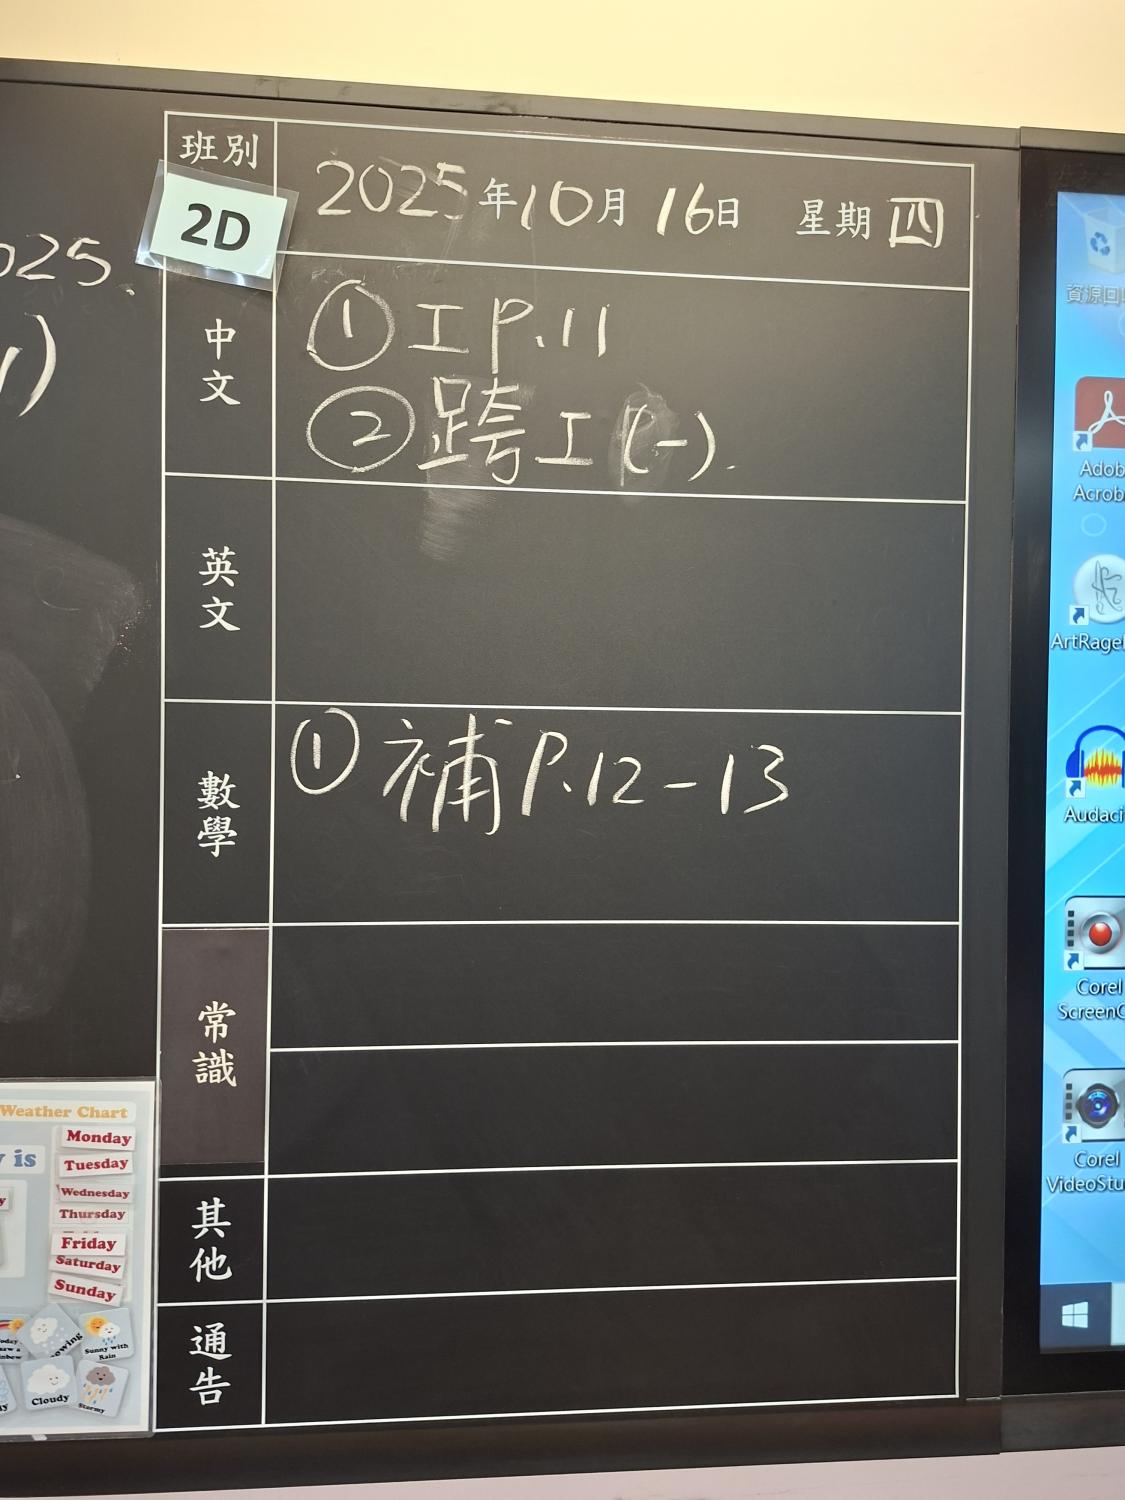 班別
2D
2025年10月16日 星期四
025.
1)
中文
① 工 P.11
② 跨工(一).
英文
數學
① 補 P.12-13
常識
其他
通告
Weather Chart
y is
Monday
Tuesday
Wednesday
Thursday
Friday
Saturday
Sunday
owing
Sunny with
Rain
Cloudy
Stormy
資源回
Adob
Acrob
ArtRage
Audaci
Corel
ScreenC
Corel
VideoStu